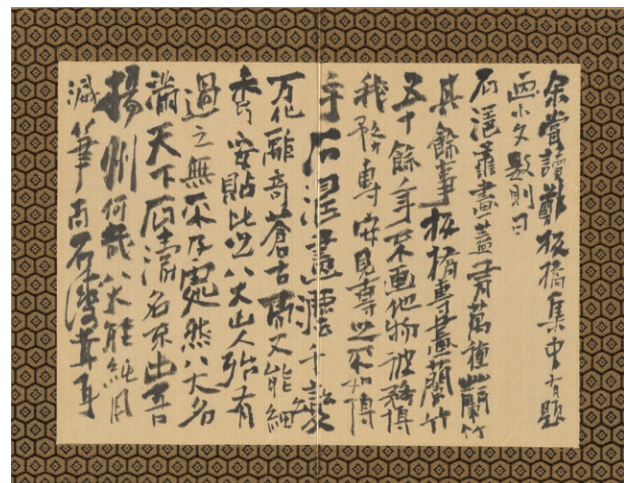 余嘗讀鄭板橋集中有題
画小文數則曰
石濤善畫蓋有萬種蘭竹
其餘事板橋專畫蘭竹
五十餘年不画他物彼務博
我務專安見專之不如博
乎石濤畫法千變
万化離奇蒼古而又能細
秀安貼比之八大山人殆有
過之無不及處然八大名
滿天下石濤名不出吾
揚州何哉八大能純用
減筆而石濤茸耳